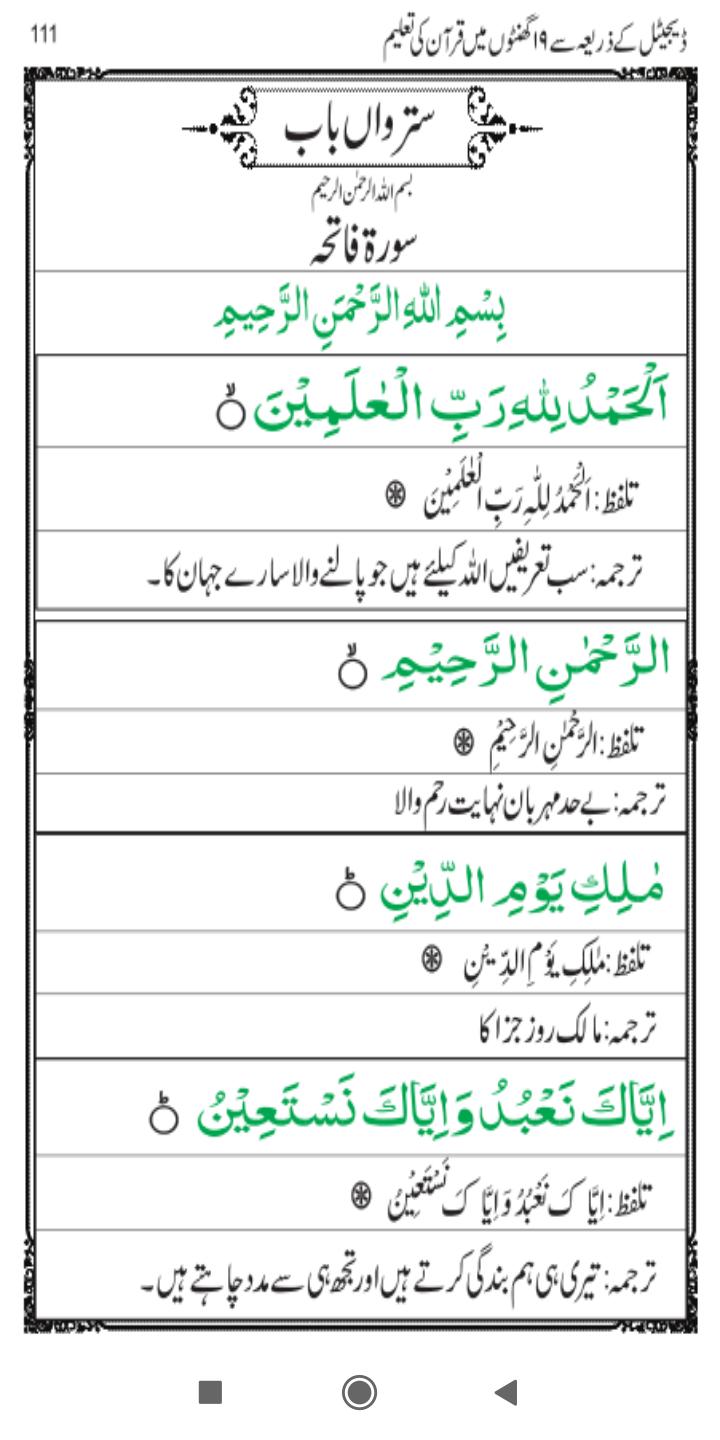 ڈیجیٹل کے ذریعہ سے ۱۹ گھنٹوں میں قرآن کی تعلیم
111
ستر واں باب
بسم اللہ الرحمٰن الرحیم
سورۃ فاتحہ
بِسْمِ اللهِ الرَّحْمَنِ الرَّحِيمِ
اَلْحَمْدُ لِلّٰهِ رَبِّ الْعٰلَمِيْنَ ۙ
تلفظ: اَلْحَمْدُ لِلّٰہِ رَبِّ الْعٰلَمِیْنَ ۞
ترجمہ: سب تعریفیں اللہ کیلئے ہیں جو پالنے والا سارے جہان کا۔
الرَّحْمٰنِ الرَّحِيْمِ ۙ
تلفظ: الرَّحْمٰنِ الرَّحِیْمِ ۞
ترجمہ: بے حد مہربان نہایت رحم والا
مٰلِكِ يَوْمِ الدِّيْنِ ؕ
تلفظ: مٰلِکِ یَوْمِ الدِّیْنِ ۞
ترجمہ: مالک روز جزا کا
اِيَّاكَ نَعْبُدُ وَاِيَّاكَ نَسْتَعِيْنُ ؕ
تلفظ: اِیَّا کَ نَعْبُدُ وَ اِیَّا کَ نَسْتَعِیْنُ ۞
ترجمہ: تیری ہی ہم بندگی کرتے ہیں اور تجھ ہی سے مدد چاہتے ہیں۔